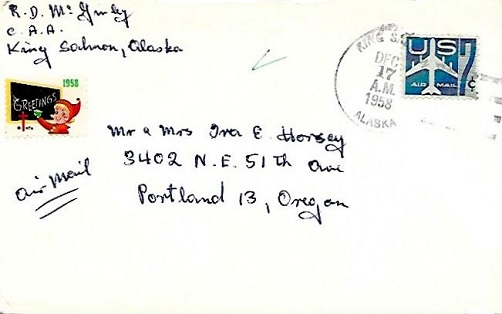 R. D. McGinley
C. A. A.
King Salmon, Alaska
1958
GREETINGS
KING S
DEC
17
A.M.
1958
ALASKA
US
7c
AIR MAIL
Mr & Mrs Ira E. Horsey
3402 N.E. 51th Ave
Portland 13, Oregon
Air Mail